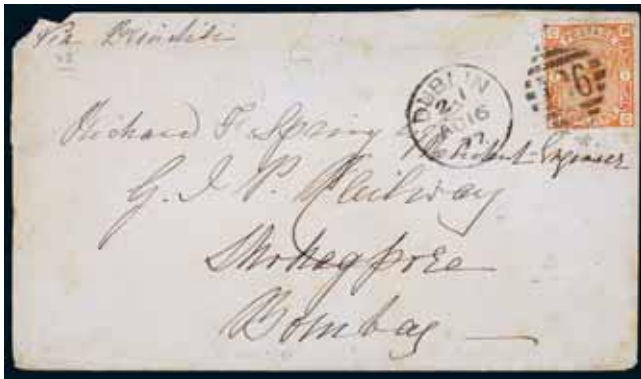 Via Brindisi
DUBLIN
AU 16
Richard F. Spring Esq
Resident Engineer
G. I. P. Railway
Shohagpore
Bombay